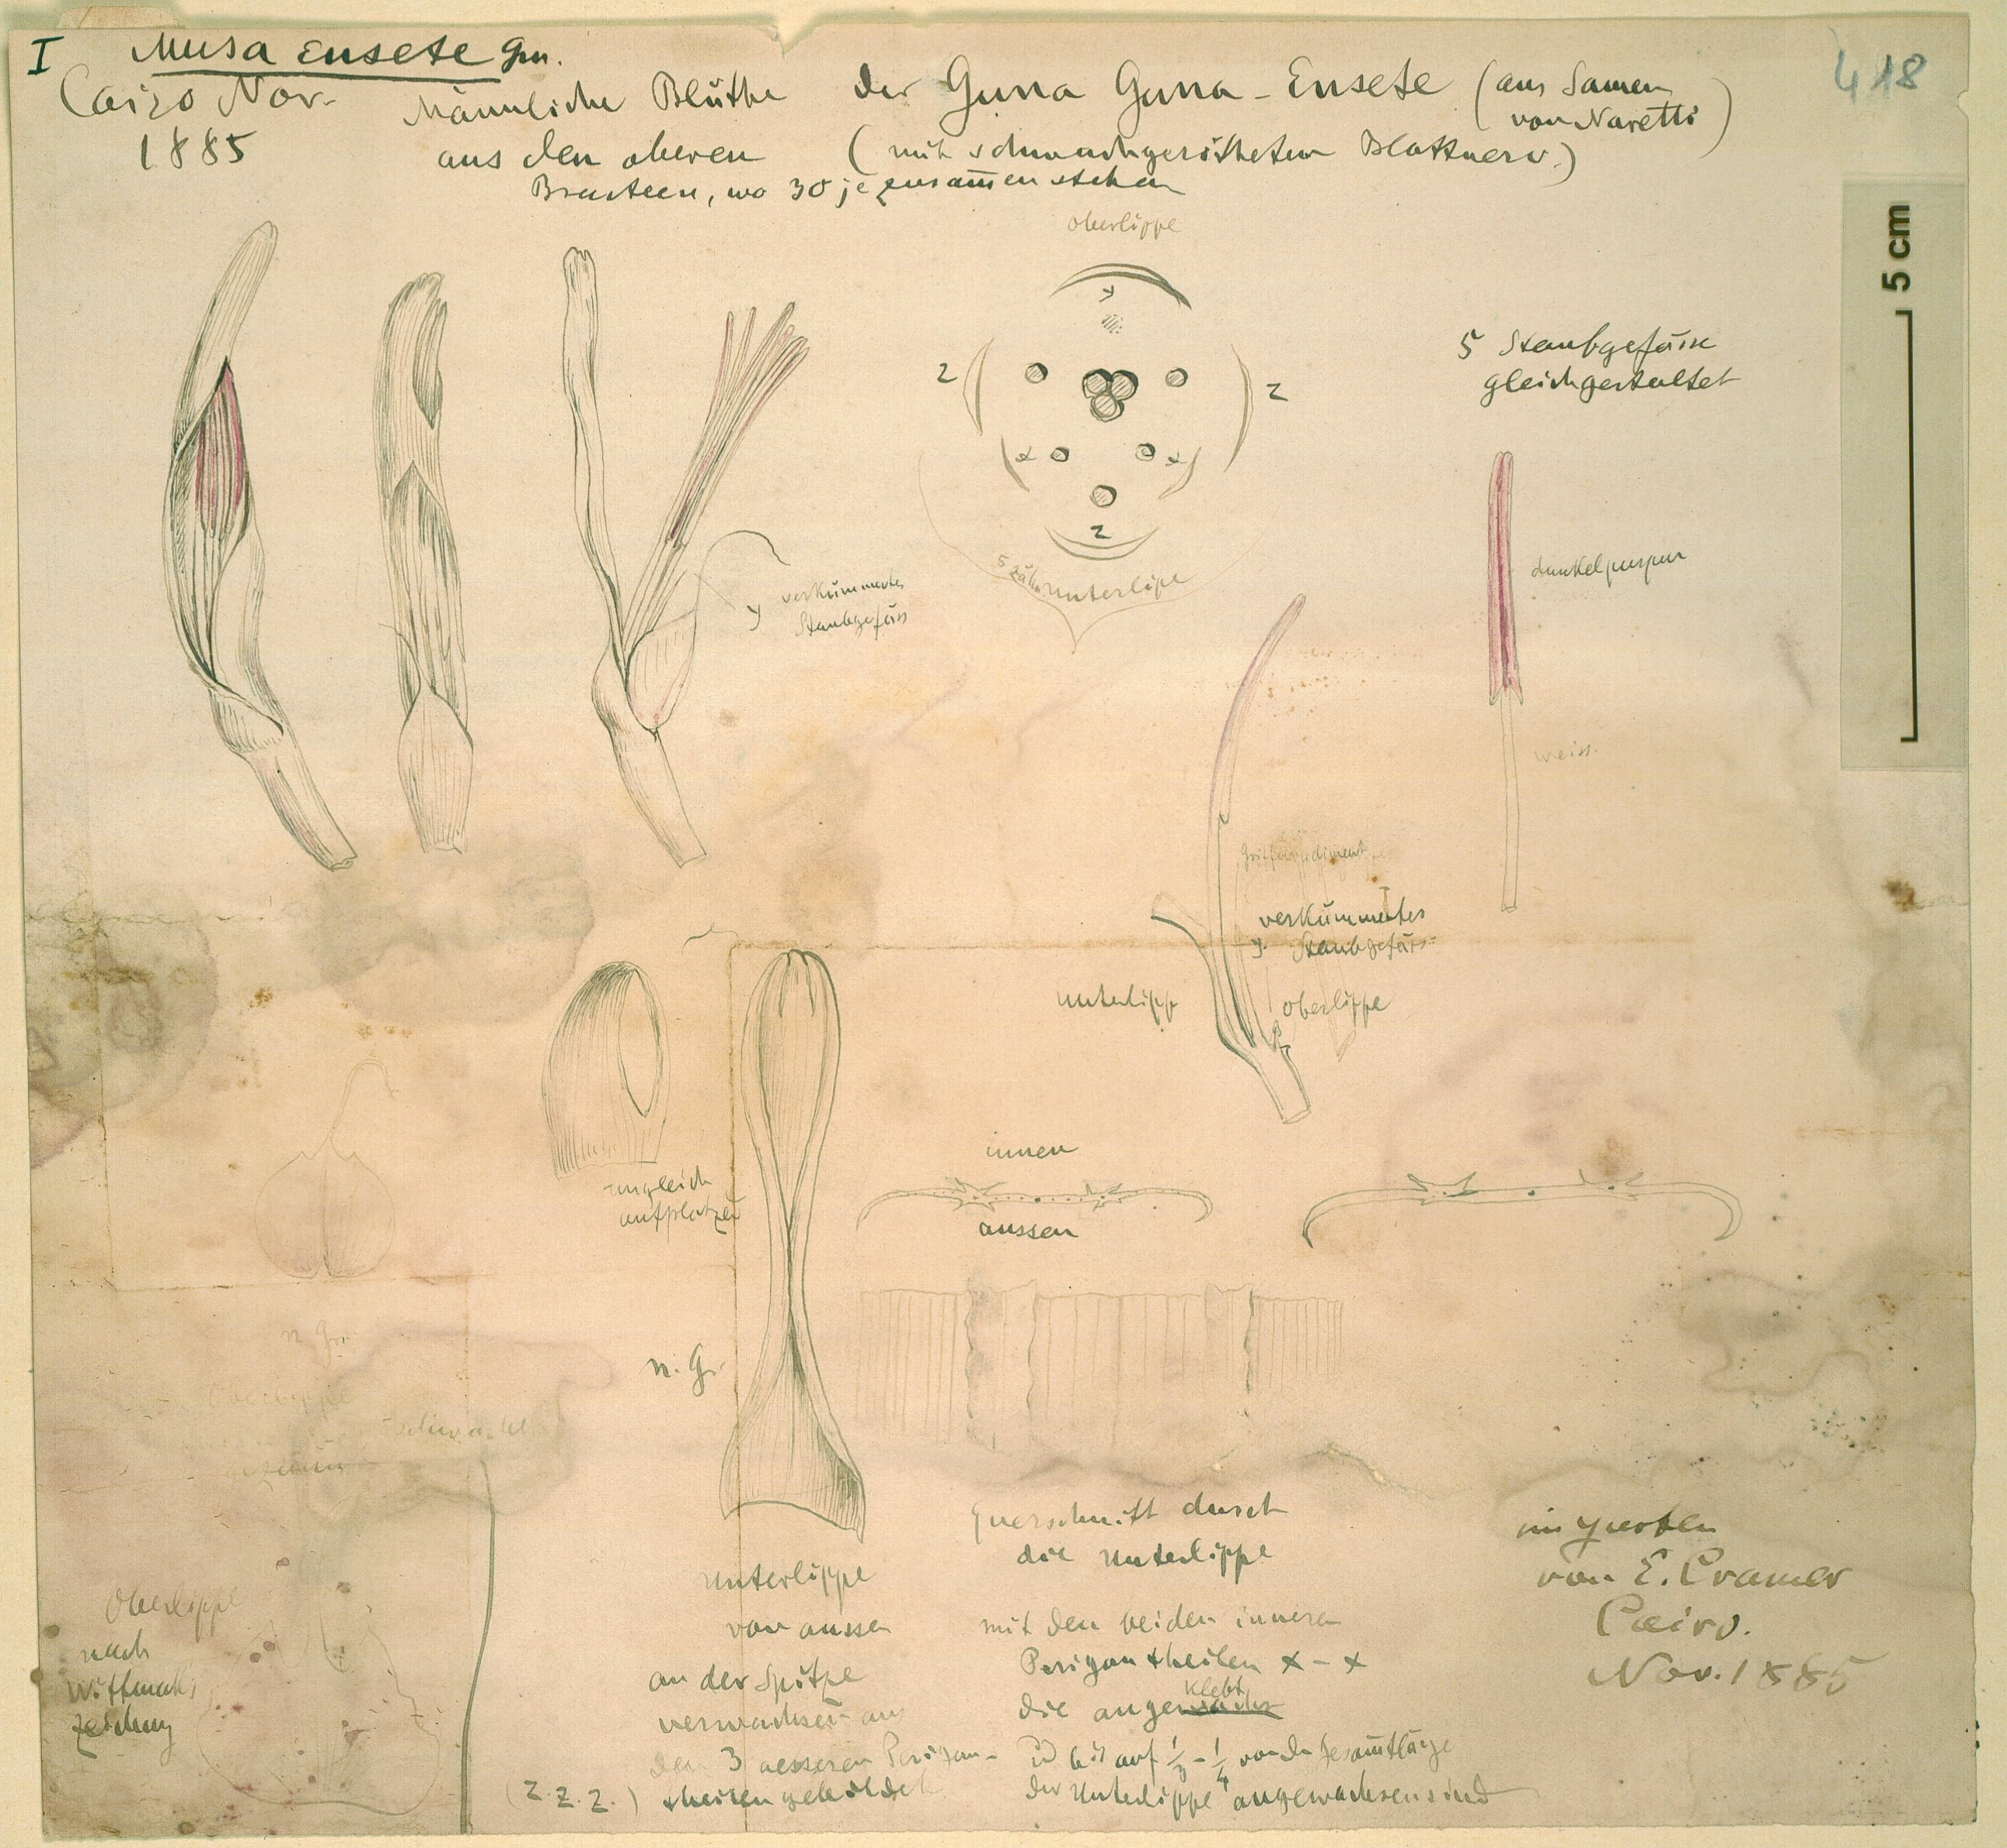 I Musa Ensete Gm.
418
Cairo Nov.
1885
Männliche Blüthe der Guna Guna-Ensete (aus Samen
von Naretti)
aus den oberen (mit schwachgeröthetem Blattnerv.)
Bracteen, wo 30 je zusam̄en stehen
oberlippe
5 cm
5 Staubgefässe
gleichgestaltet
y
z
z
x
x
z
5 zähn.
unterlipe
dunkelpurpur
verkümmertes
y Staubgefäss
weiss.
Griffelrudiment
verkümmertes
y. Staubgefäss
unterlipp
oberlippe
innen
ungleich
aufplatzen
aussen
n. Gr.
n. Gr.
Oberlippe
schwach
gezähnt
Querschnitt durch
die Unterlippe
im garten
von E. Cramer
Cairo.
Nov. 1885
Unterlippe
von aussen
an der Spitze
verwachsen aus
den 3 aesseren Perigon-
(z. z. z.) theilen gebildet
mit den beiden inneren
Perigontheilen x - x
klebt
die angewachs
bis auf 1/3 - 1/4 von der Gesam̄tlänge
der Unterlippe angewachsen sind
Oberlippe
nach
Wittmack's
Zeichnung